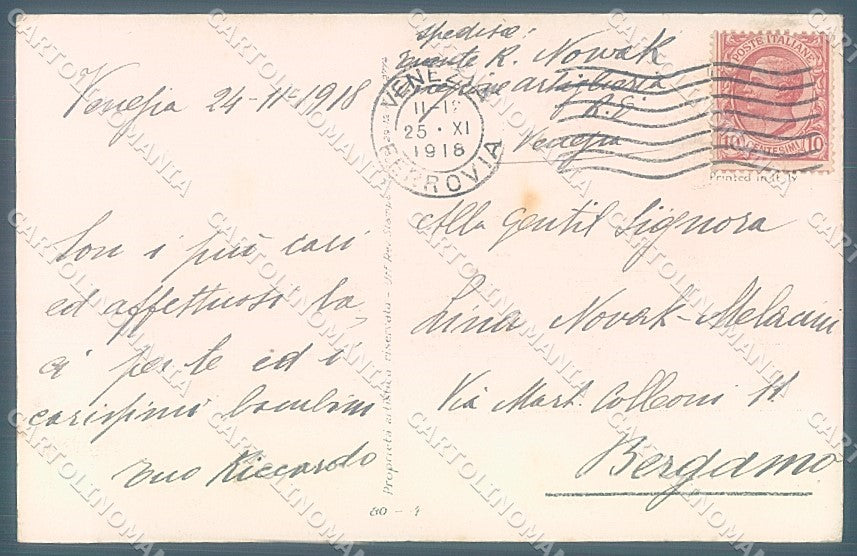 Venezia 24-11-1918
Con i più cari
ed affettuosi ba,
ci per te ed i
carissimi bambini
tuo Riccardo
Proprietà artistica riservata
80 - 1
spedisce:
R. Nowak
artiglieria
Venezia
VENEZIA
25 · XI
1918
FERROVIA
POSTE ITALIANE
10 CENTESIMI 10
Printed in Italy
Alla gentil Signora
Lina Novak-Melacini
Via Mart. Colleoni 11
Bergamo
CARTOLINOMANIA